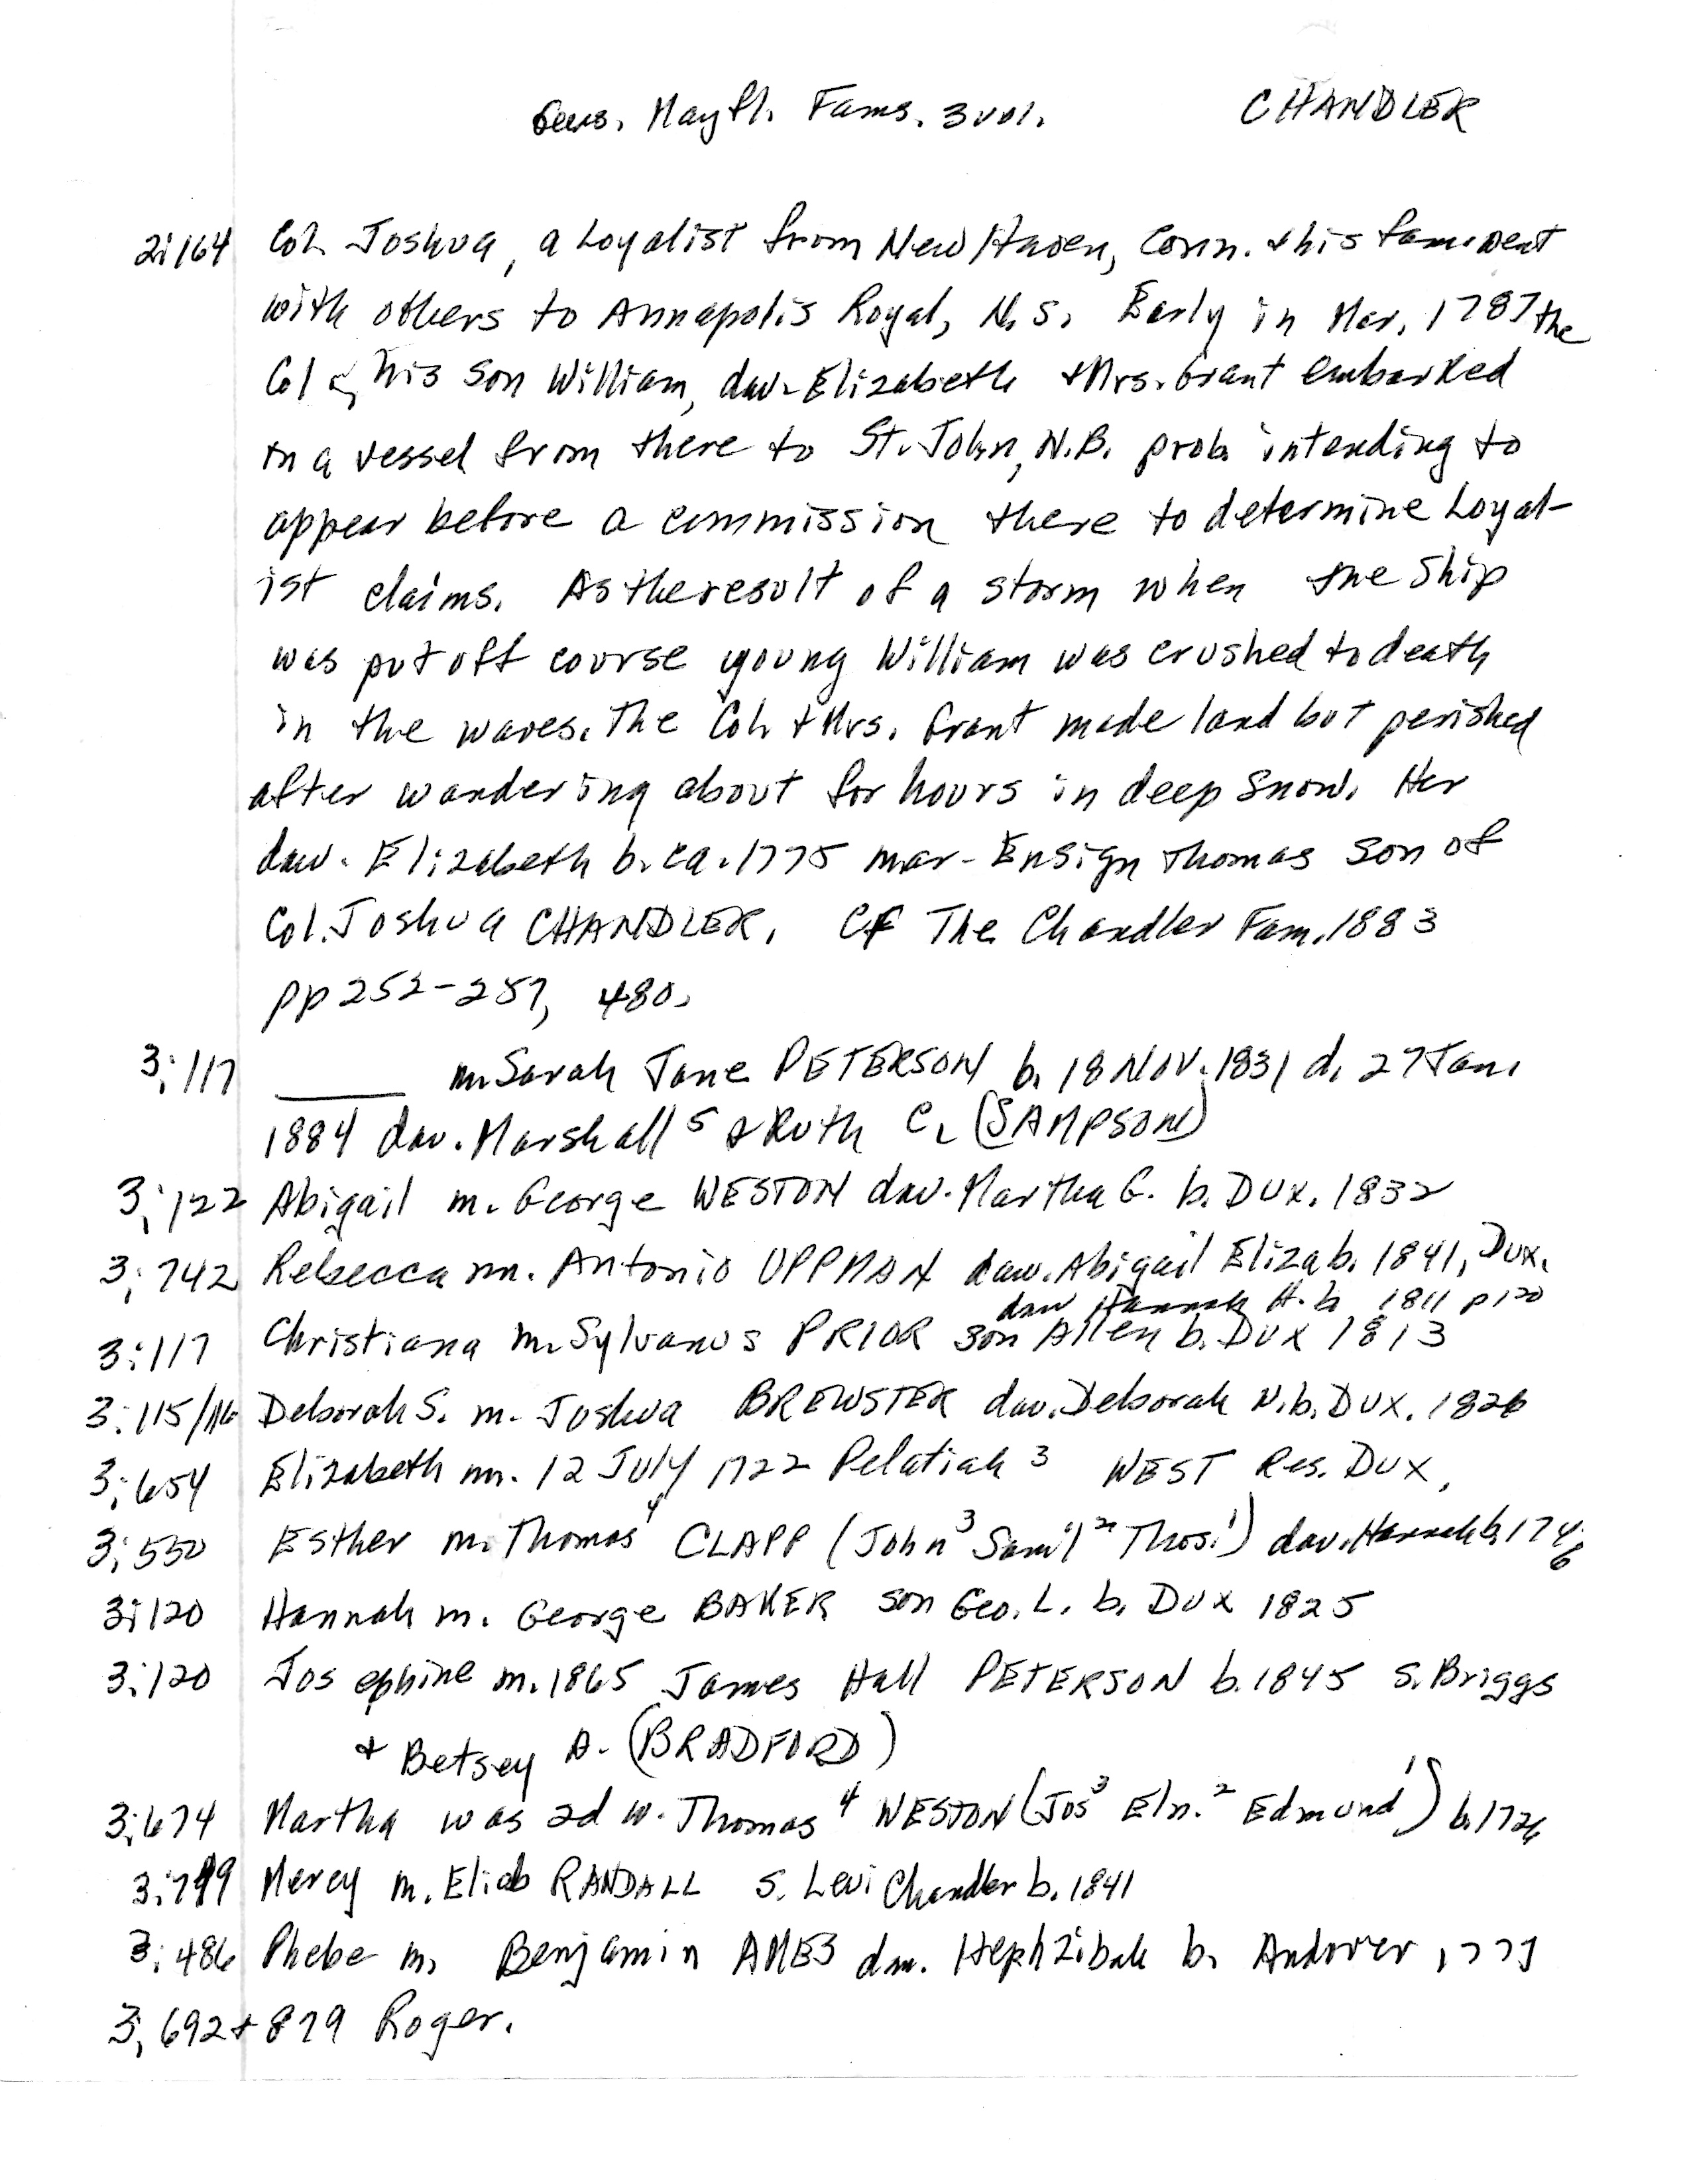 Gens. Mayfl. Fams. 3 vol. CHANDLER
2:164 Col. Joshua, a Loyalist from New Haven, Conn. & his fam. went
with others to Annapolis Royal, N.S. Early in Mar. 1787 the
Col & his son William, dau. Elizabeth & Mrs. Grant embarked
in a vessel from there to St. John, N.B. prob. intending to
appear before a commission there to determine Loyal-
ist claims. As the result of a storm when the ship
was put off course young William was crushed to death
in the waves. The Col. & Mrs. Grant made land but perished
after wandering about for hours in deep snow. Her
dau. Elizabeth b. ca. 1775 mar. Ensign Thomas son of
Col. Joshua CHANDLER. Cf The Chandler Fam. 1883
pp 252-257, 480.
3:117 ______ m. Sarah Jane PETERSON b. 18 NOV. 1831 d. 27 Jan.
1884 dau. Marshall 5 & Ruth C. (SAMPSON)
3:122 Abigail m. George WESTON dau. Martha G. b. Dux. 1832
3:742 Rebecca m. Antonio UPPMAN dau. Abigail Eliza b. 1841, Dux.
dau Hannah H. b 1811 p 120
3:117 Christiana m. Sylvanus PRIOR son Allen b. Dux 1813
3:115/116 Deborah S. m. Joshua BREWSTER dau. Deborah N. b. Dux. 1826
3:654 Elizabeth m. 12 July 1722 Pelatiah 3 WEST Res. Dux.
3:550 Esther m. Thomas 4 CLAPP (John 3 Sam'l 2 Thos. 1) dau. Hannah b. 1746
3:120 Hannah m. George BAKER son Geo. L. b. Dux 1825
3:120 Josephine m. 1865 James Hall PETERSON b. 1845 s. Briggs
& Betsey A. (BRADFORD)
3:674 Martha was 2d w. Thomas 4 WESTON (Jos 3 Eln. 2 Edmund 1) b. 1726
Mercy m. Eliab RANDALL s. Levi Chandler b. 1841
3:486 Phebe m. Benjamin AMES dau. Hephzibah b. Andover
3:692 & 879 Roger.